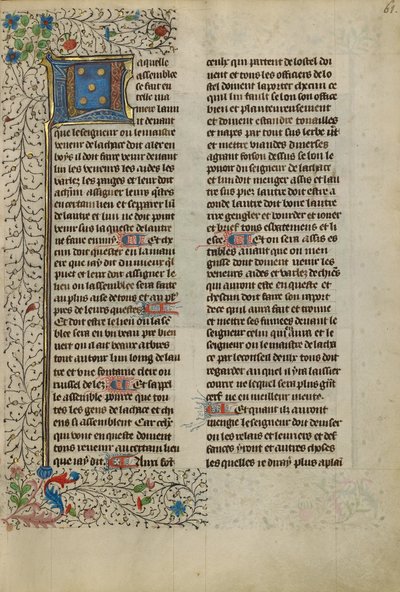 61
Laquelle
assemblee
se fait en
telle ma
niere la nuit
deuant
que le seigneur ou le maistre
veneur de la chace doit aler en
boys il doit faire venir deuant
luy les veneurs les aides les
varlez les pages et leur doit
a chun assigner leurs questes
en certain lieu et separer lun
de lautre et lun ne doit point
venir sus la queste de lautre
ne faire ennuy Et chu
cun doit quester en la mani
ere que iay dit au mieux quil
puet et leur doit assigner le
lieu ou lassemblee sera faite
au plus aise de tous et au plus
pres de leurs questes
Et doit estre le lieu ou lasse
blee sera en vn beau pre bien
vert ou il ait beaux arbres
tout autour lun loing de lau
tre et vne fontaine clere ou
russel de lez Et sapel
le assemblee pource que tou
tes les gens de la chace et chi
ens si assemblent Car ceulx
qui vont en queste doiuent
tous reuenir a vn certain lieu
que iay dit Aussi font
ceulx qui partent de lostel doi
uent et tous les officiers de lo
stel doiuent la porter chacun ce
quil lui fault selon son office
bien et planteureusement
et doiuent estandre touailles
et napes par tout sus lerbe vert
et mettre viandes diuerses
a grant foison dessus selon le
pouoir du seigneur de la chace
et lun doit menger assis et lau
tre sus piez lautre doit estre a
coude lautre doit boire lautre
rire gengler et bourder et iouer
et brief tous esbatemens et li
esse Et on sera assis es
tables auant que on men
gusse doit doiuent venir les
veneurs aides et varlez de chiens
qui auront este en queste et
chascun doit faire son raport
de ce quil aura fait et trouue
et mettre ses fumees deuant le
seigneur celui qui aura et le
seigneur ou le maistre de la cha
ce par le conseil deulx tous doit
regarder au quel il yra laissier
courre ne lequel sera plus grant
cerf ne en meilleur meute
Et quant ilz auront
mengie le seigneur doit deuiser
ou les relais et leuriers et def
fences yront et autres choses
lesquelles ie diray plus a plai